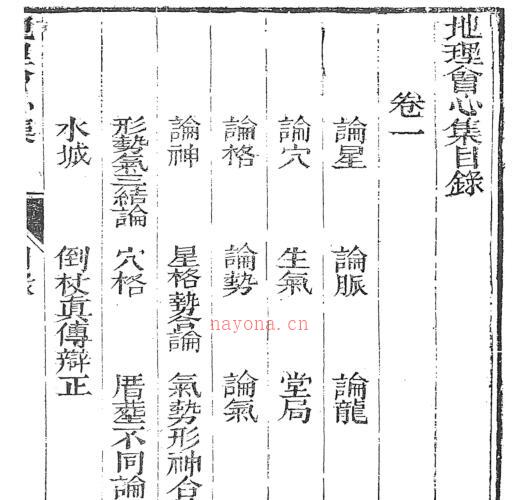 地理會心集目錄
卷一
論星 論脈 論龍
論穴 生氣 堂局
論格 論勢 論氣
論神 星格勢合論 氣勢形神合
形勢氣三結論 穴格 厝塟不同論
水城 倒杖眞傳辯正
nayona.cn